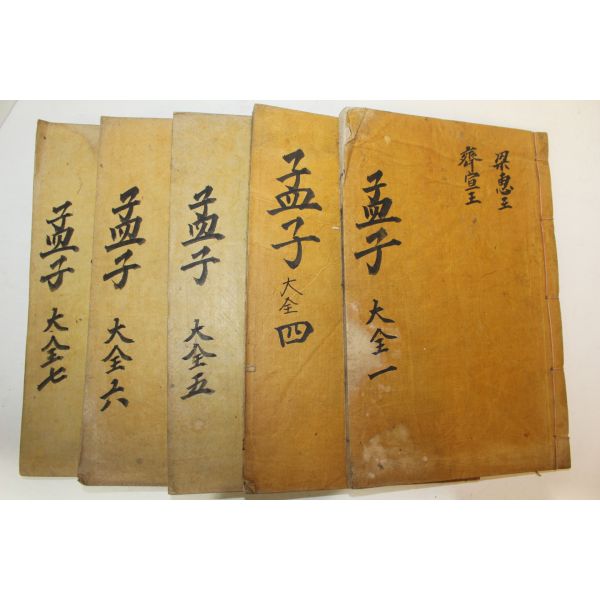 梁惠王
齊宣王
孟子 大全一
孟子 大全 四
孟子 大全五
孟子 大全六
孟子 大全七